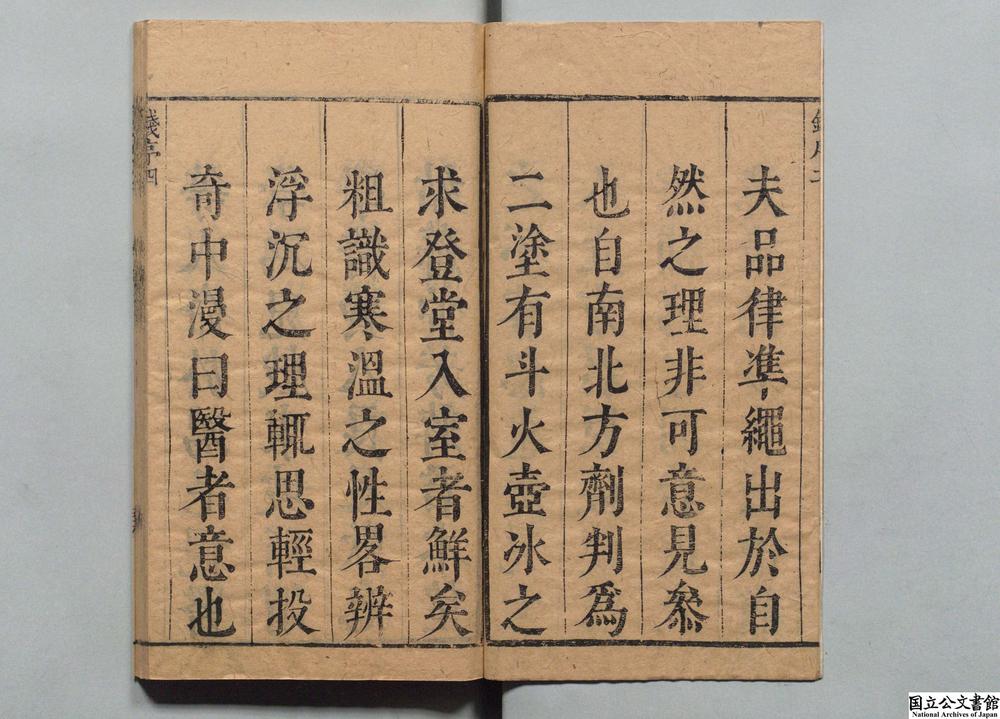 夫品律準繩出於自
然之理非可意見叅
也自南北方劑判爲
二塗有斗火壺冰之
求登堂入室者鮮矣
粗識寒溫之性畧辨
浮沉之理輒思輕投
奇中漫曰醫者意也
錢序四
国立公文書館
National Archives of Japan